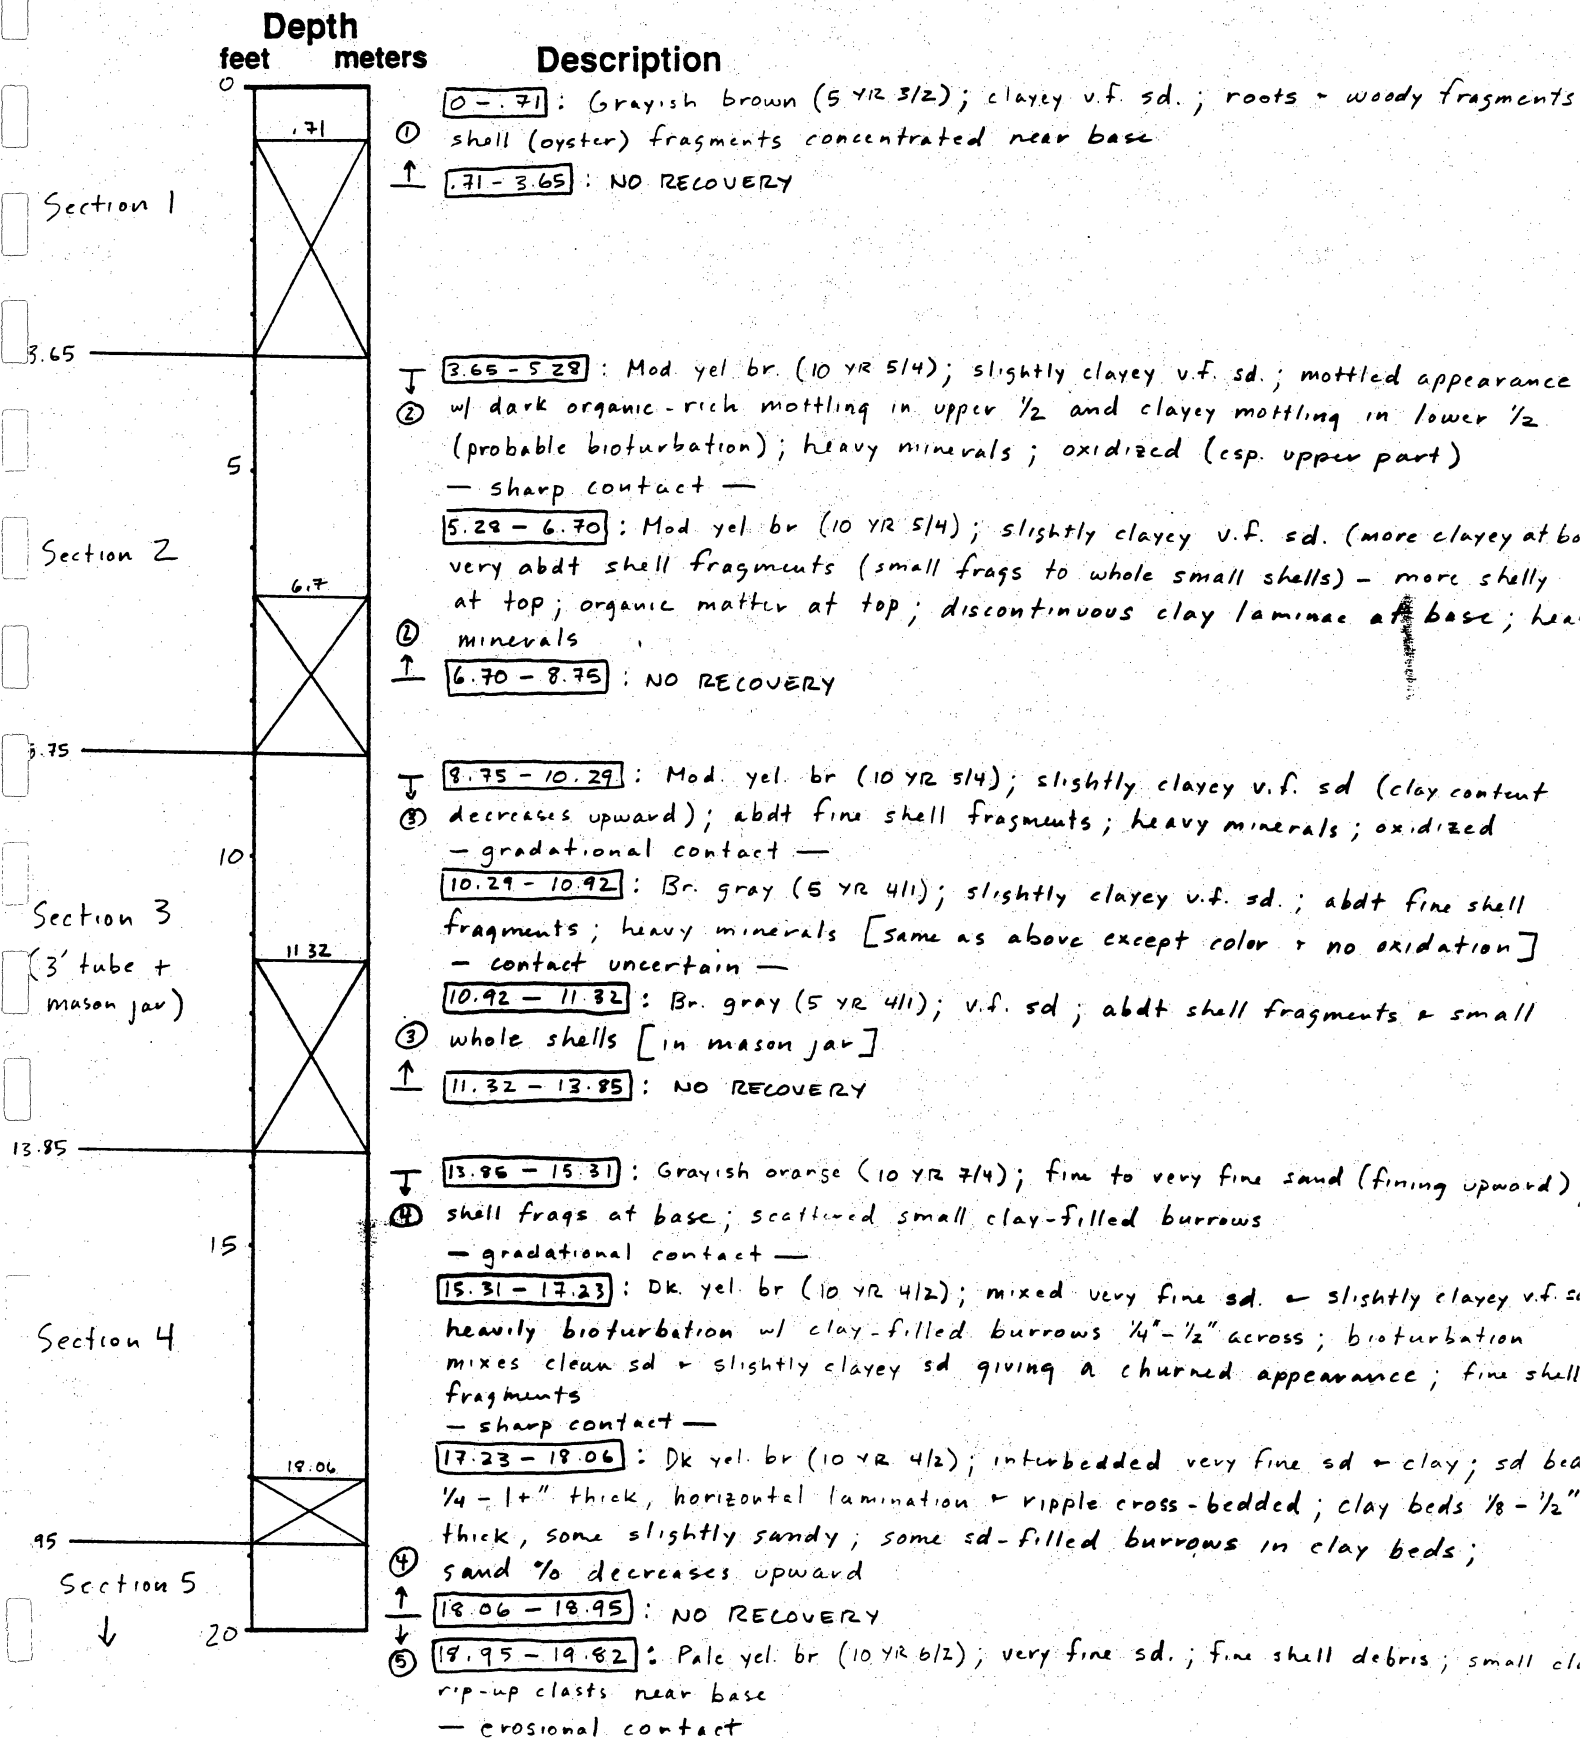 Depth
feet meters Description
0
0 - .71 : Grayish brown (5 YR 3/2); clayey v.f. sd. ; roots + woody fragments
.71
① shell (oyster) fragments concentrated near base
↑ .71 - 3.65 : NO RECOVERY
Section 1
3.65
↓ 3.65 - 5.28 : Mod. yel. br. (10 YR 5/4); slightly clayey v.f. sd. ; mottled appearance
② w/ dark organic-rich mottling in upper 1/2 and clayey mottling in lower 1/2
(probable bioturbation); heavy minerals ; oxidized (esp. upper part)
5
— sharp contact —
5.28 - 6.70 : Mod yel br (10 YR 5/4); slightly clayey v.f. sd. (more clayey at
Section 2
very abdt shell fragments (small frags to whole small shells) - more shelly
6.7
at top; organic matter at top; discontinuous clay laminae at base;
② minerals
↑ 6.70 - 8.75 : NO RECOVERY
.75
↓ 8.75 - 10.29 : Mod. yel. br (10 YR 5/4); slightly clayey v.f. sd (clay content
③ decreases upward); abdt fine shell fragments; heavy minerals; oxidized
— gradational contact —
10
10.29 - 10.92 : Br. gray (5 YR 4/1); slightly clayey v.f. sd. ; abdt fine shell
Section 3
fragments; heavy minerals [same as above except color + no oxidation]
11.32
(3' tube +
— contact uncertain —
mason jar)
10.92 - 11.32 : Br. gray (5 YR 4/1); v.f. sd ; abdt shell fragments + small
③ whole shells [in mason jar]
↑ 11.32 - 13.85 : NO RECOVERY
13.85
↓ 13.85 - 15.31 : Grayish orange (10 YR 7/4); fine to very fine sand (fining upward) ;
④ shell frags at base; scattered small clay-filled burrows
15
— gradational contact —
15.31 - 17.23 : Dk. yel. br (10 YR 4/2); mixed very fine sd. + slightly clayey v.f.
Section 4
heavily bioturbation w/ clay-filled burrows 1/4"-1/2" across; bioturbation
mixes clean sd + slightly clayey sd giving a churned appearance; fine shell
fragments
— sharp contact —
17.23 - 18.06 : Dk yel. br (10 YR 4/2); interbedded very fine sd + clay; sd
18.06
1/4 - 1+" thick, horizontal lamination + ripple cross-bedded; clay beds 1/8 - 1/2"
thick, some slightly sandy; some sd-filled burrows in clay beds;
.95
④ sand % decreases upward
Section 5
↑ 18.06 - 18.95 : NO RECOVERY
↓
20
↓
⑤ 18.95 - 19.82 : Pale yel. br (10 YR 6/2); very fine sd. ; fine shell debris; small
rip-up clasts near base
— erosional contact